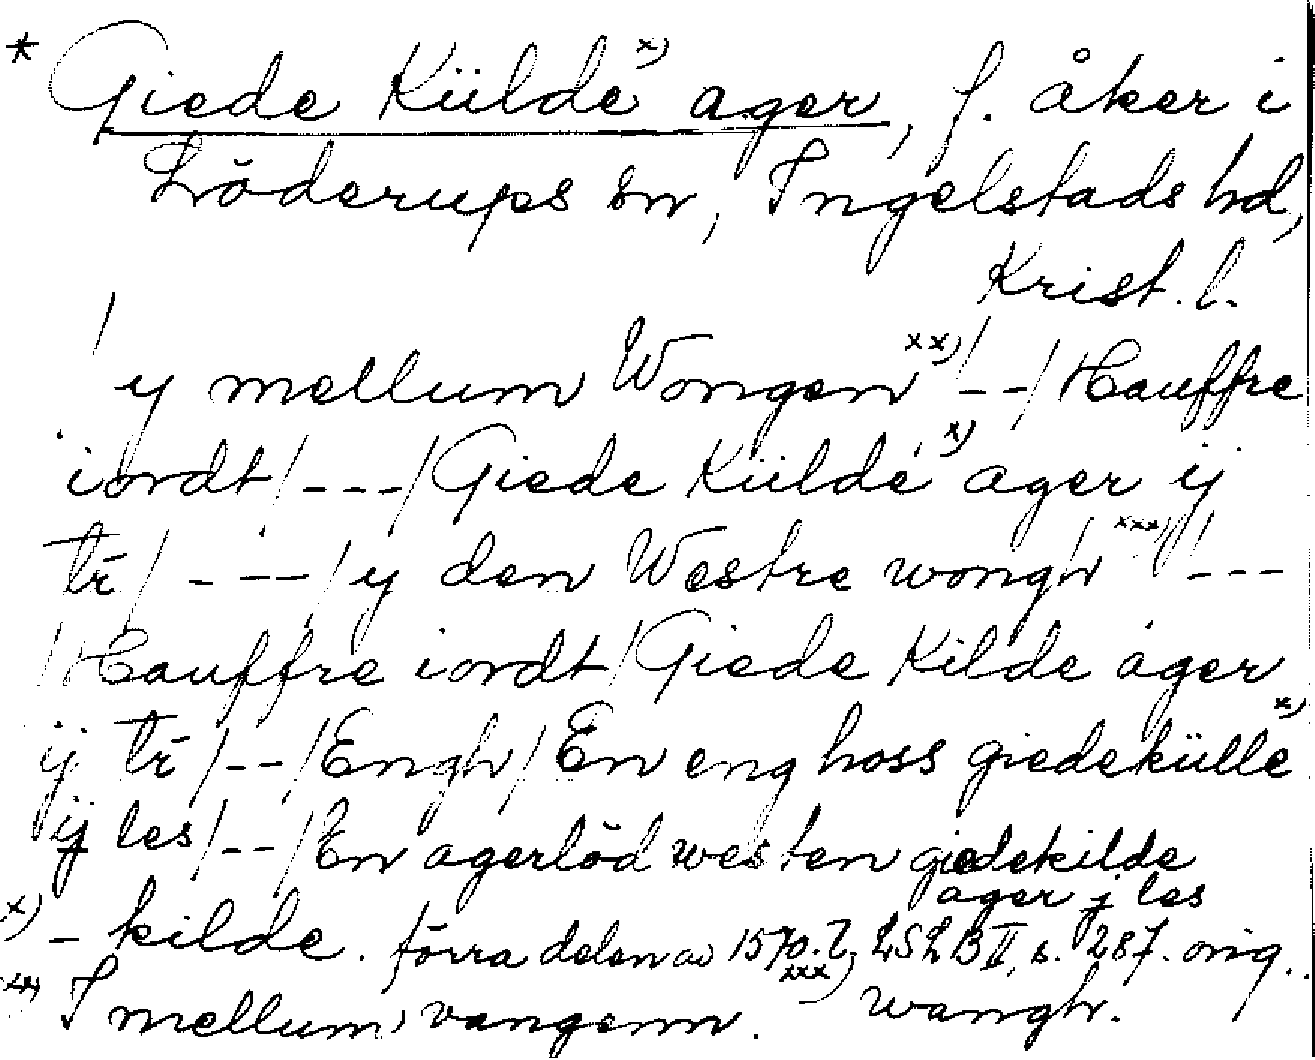 * Giede Küldé x) ager, f. åker i
Löderups sn, Ingelstads hd,
Krist. l.
/ y mellum Wongen xx) / - - / Hauffre
iordt / - - - / Giede Küldé x) ager ij
tr̄ / - - - / y den Westre wongh xxx) / - - -
/ Hauffre iordt / Giede Kilde ager
ij tr̄ / - - / Engh / En eng hoss giedekülle x)
ij les / - - / En agerlöd westen giedekilde
ager j les
x) - kilde. förra delen av 1570.t. LSLB II, s. 287. orig..
xx) I mellum vangenn. xxx) wangh.